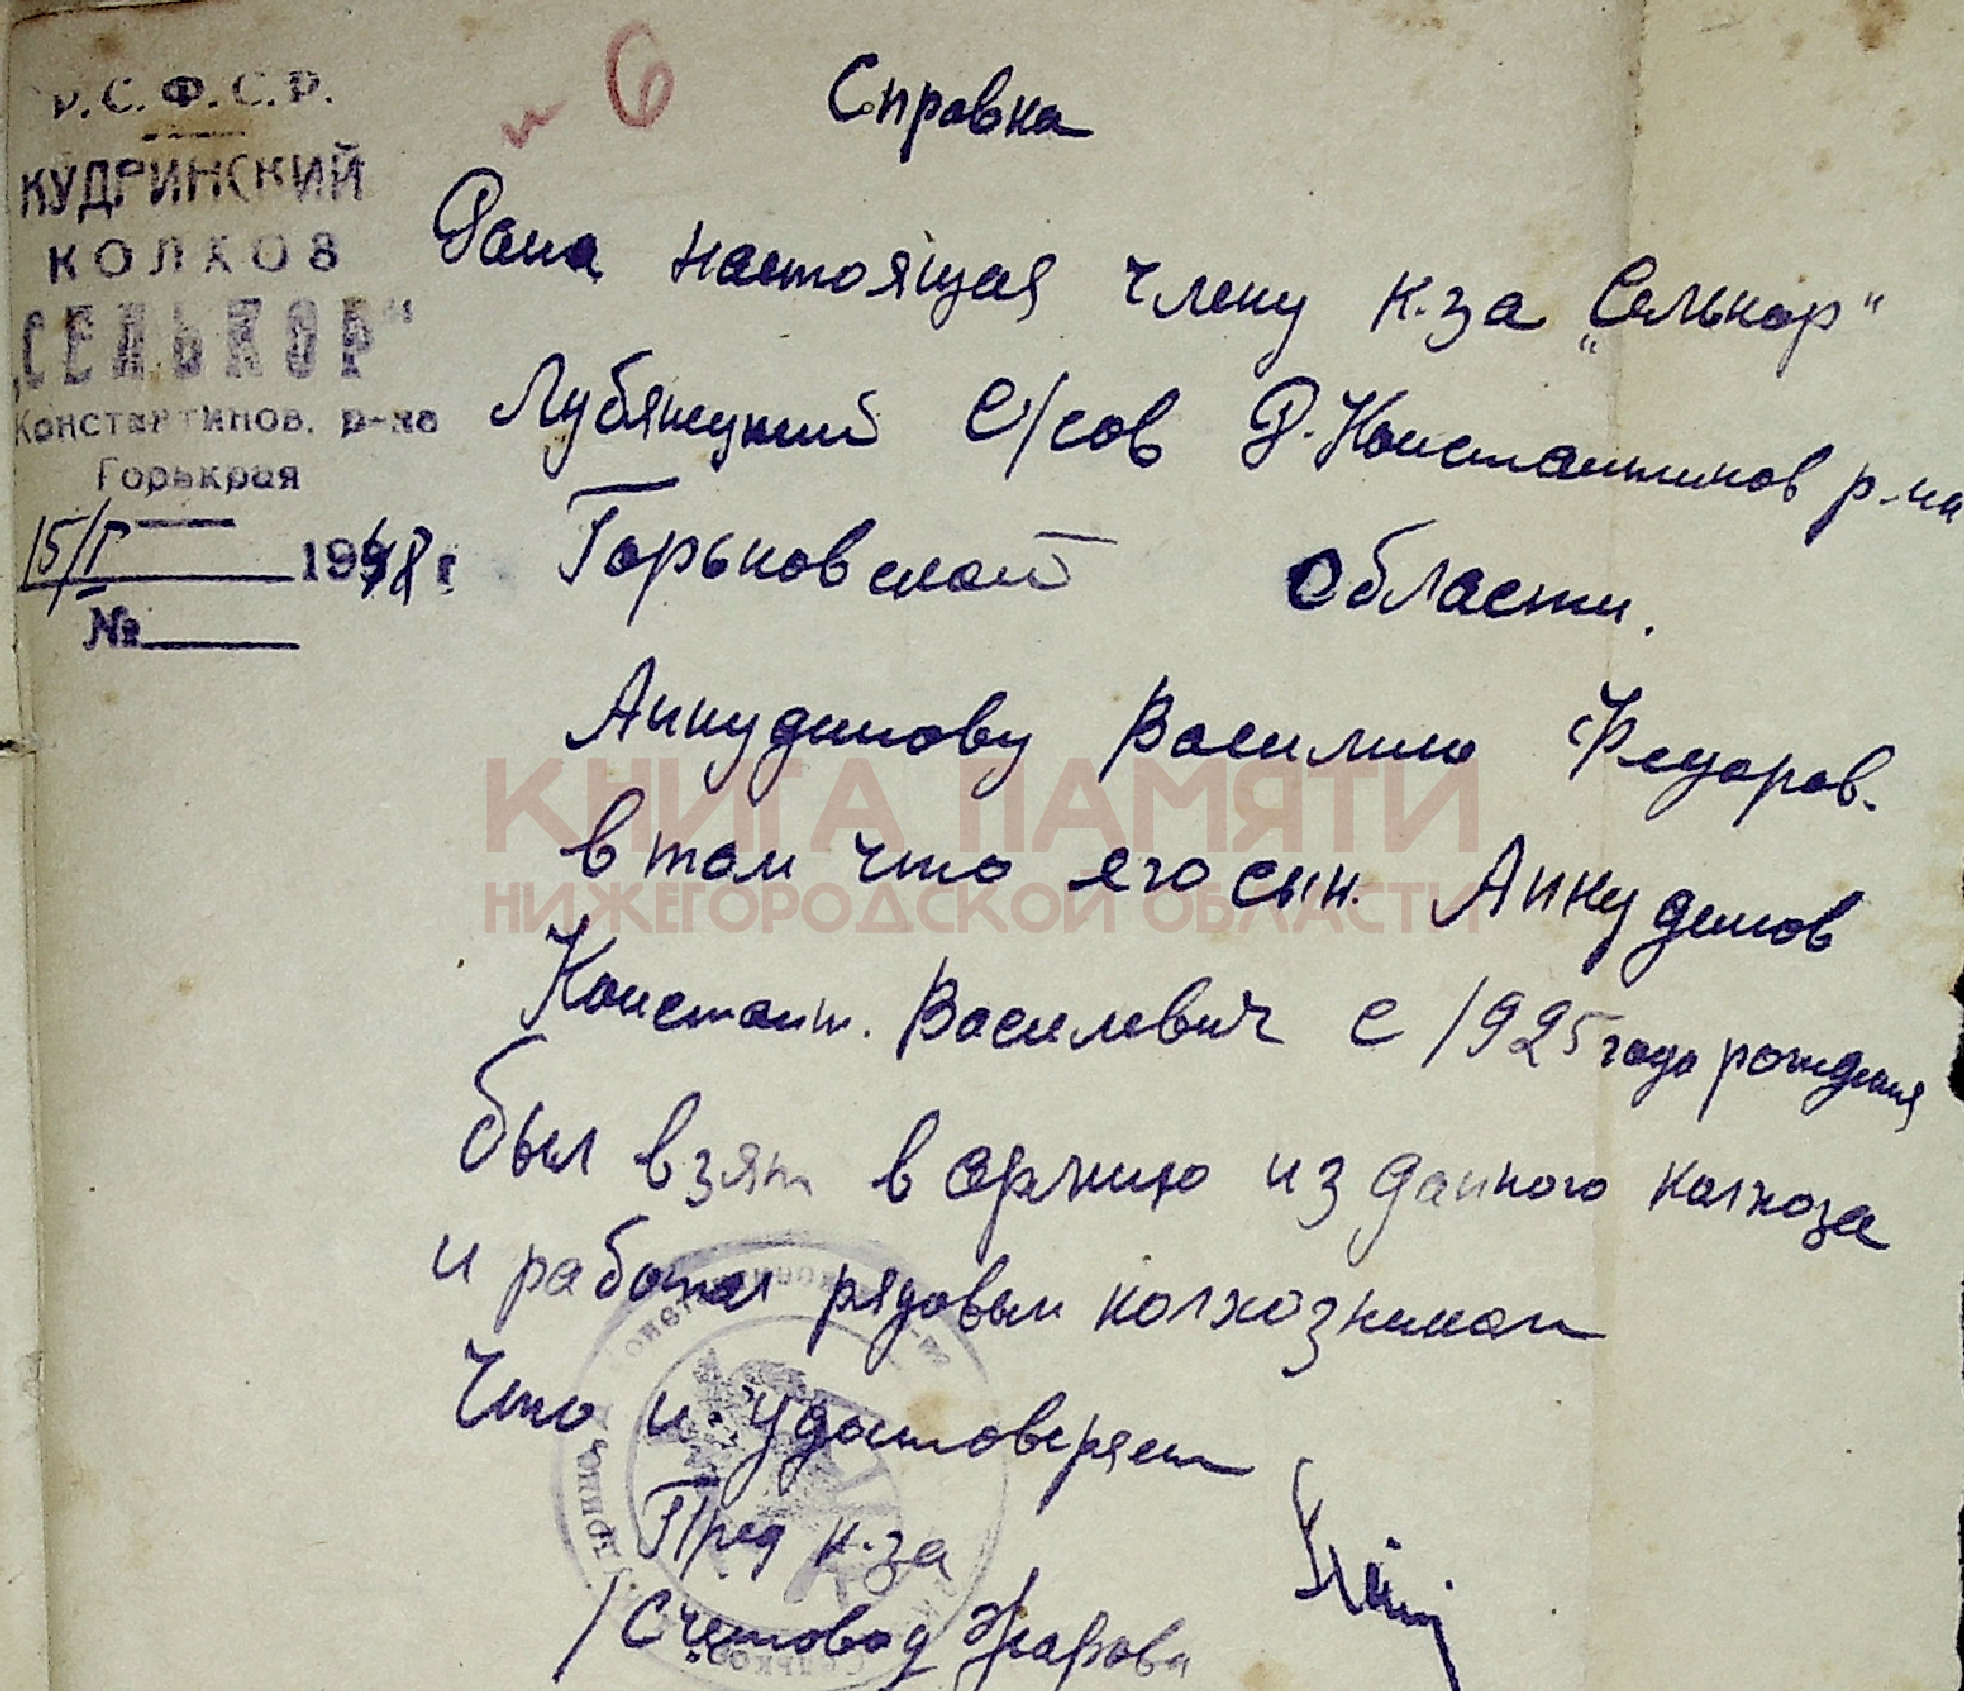 Р.С.Ф.С.Р.
КУДРИНСКИЙ
КОЛХОЗ
„СЕЛЬКОР"
Константинов. р-на
Горькрая
15/I 1948 г
№
6
Справка
Дана настоящая члену к-за „Селькор"
Лубянцкий с/сов Д.Константинов р-на
Горьковской области.
Аннудинову Василию Федоров.
КНИГА ПАМЯТИ
в том что его сын. Аннудинов
НИЖЕГОРОДСКОЙ ОБЛАСТИ
Констант. Василевич с 1925 года рождения
был взят в армию из данного колхоза
и работал рядовым колхозником
Что и удостоверяет
Пред к-за
/Счетовод Жарова